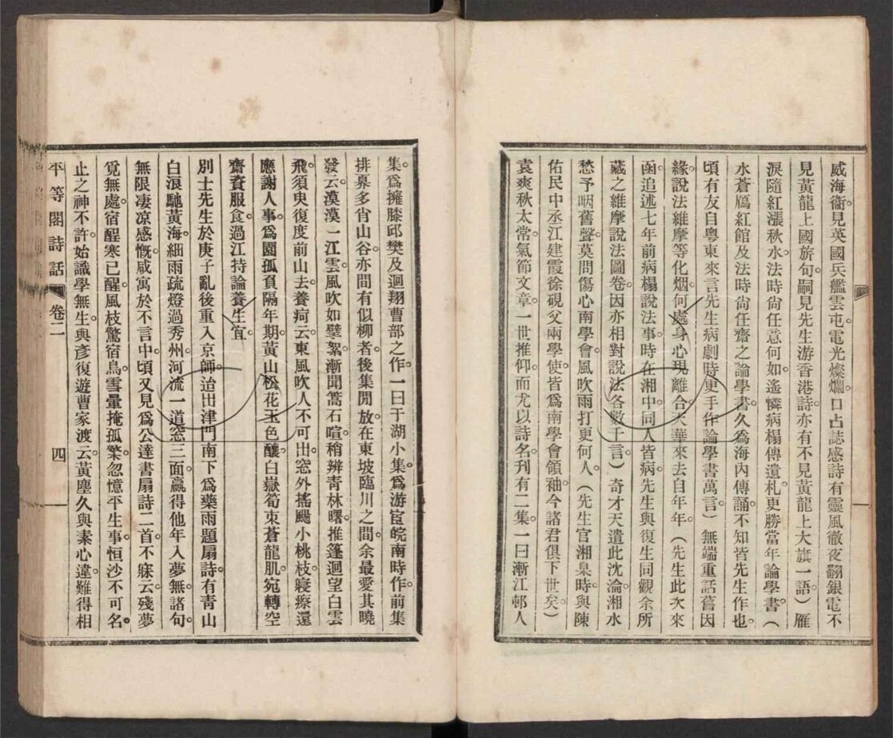 威海衞見英國兵艦雲屯電光燦爛口占誌感詩有靈風徹夜翻銀電不
見黃龍上國旂句嗣見先生游香港詩亦有不見黃龍上大旗一語）雁
淚隨紅漲秋水法時尙任意何如遙憐病榻傳遺札更勝當年論學書（
水蒼鴈紅館及法時尙任齋之論學書久爲海內傳誦不知皆先生作也
頃有友自粵東來言先生病劇時更手作論學書萬言）無端重話舊因
緣說法維摩等化烟何處身心現離合天華來去自年年（先生此次來
函追述七年前病榻說法事時在湘中同人皆病先生與復生同觀余所
藏之維摩說法圖卷因亦相對說法各數千言）奇才天遣此沈淪湘水
愁予咽舊聲莫問傷心南學會風吹雨打更何人（先生官湘臬時與陳
佑民中丞江建霞徐硯父兩學使皆爲南學會領袖今諸君俱下世矣）
袁爽秋太常氣節文章一世推仰而尤以詩名刋有二集一曰漸江邨人
集爲擁膝邱樊及迴翔曹部之作一曰于湖小集爲游宦皖南時作前集
排奡多肖山谷亦間有似柳者後集閒放在東坡臨川之間余最愛其曉
發云漠漠一江雲風吹如擘絮漸聞蒿石喧稍辨青林曙推篷迴望白雲
飛須臾復度前山去養疴云東風吹人不可出窓外搖颺小桃枝寢瘵還
應謝人事爲園孤負隔年期黃山松花玉色釀白嶽筍朿蒼龍肌宛轉空
齋資服食過江持論養生宜
別士先生於庚子亂後重入京師道出津門南下爲藥雨題扇詩有青山
白浪馳黃海細雨疏燈過秀州河流一道窓三面贏得他年入夢無諸句
無限凄凉感慨咸寓於不言中頃又見爲公達書扇詩二首不寐云殘夢
覓無處宿醒寒已醒風枝驚宿鳥雪暈掩孤檠忽憶平生事恒沙不可名
止之神不許始識學無生與彥復遊曹家渡云黃塵久與素心違難得相
平等閣詩話
卷二
四